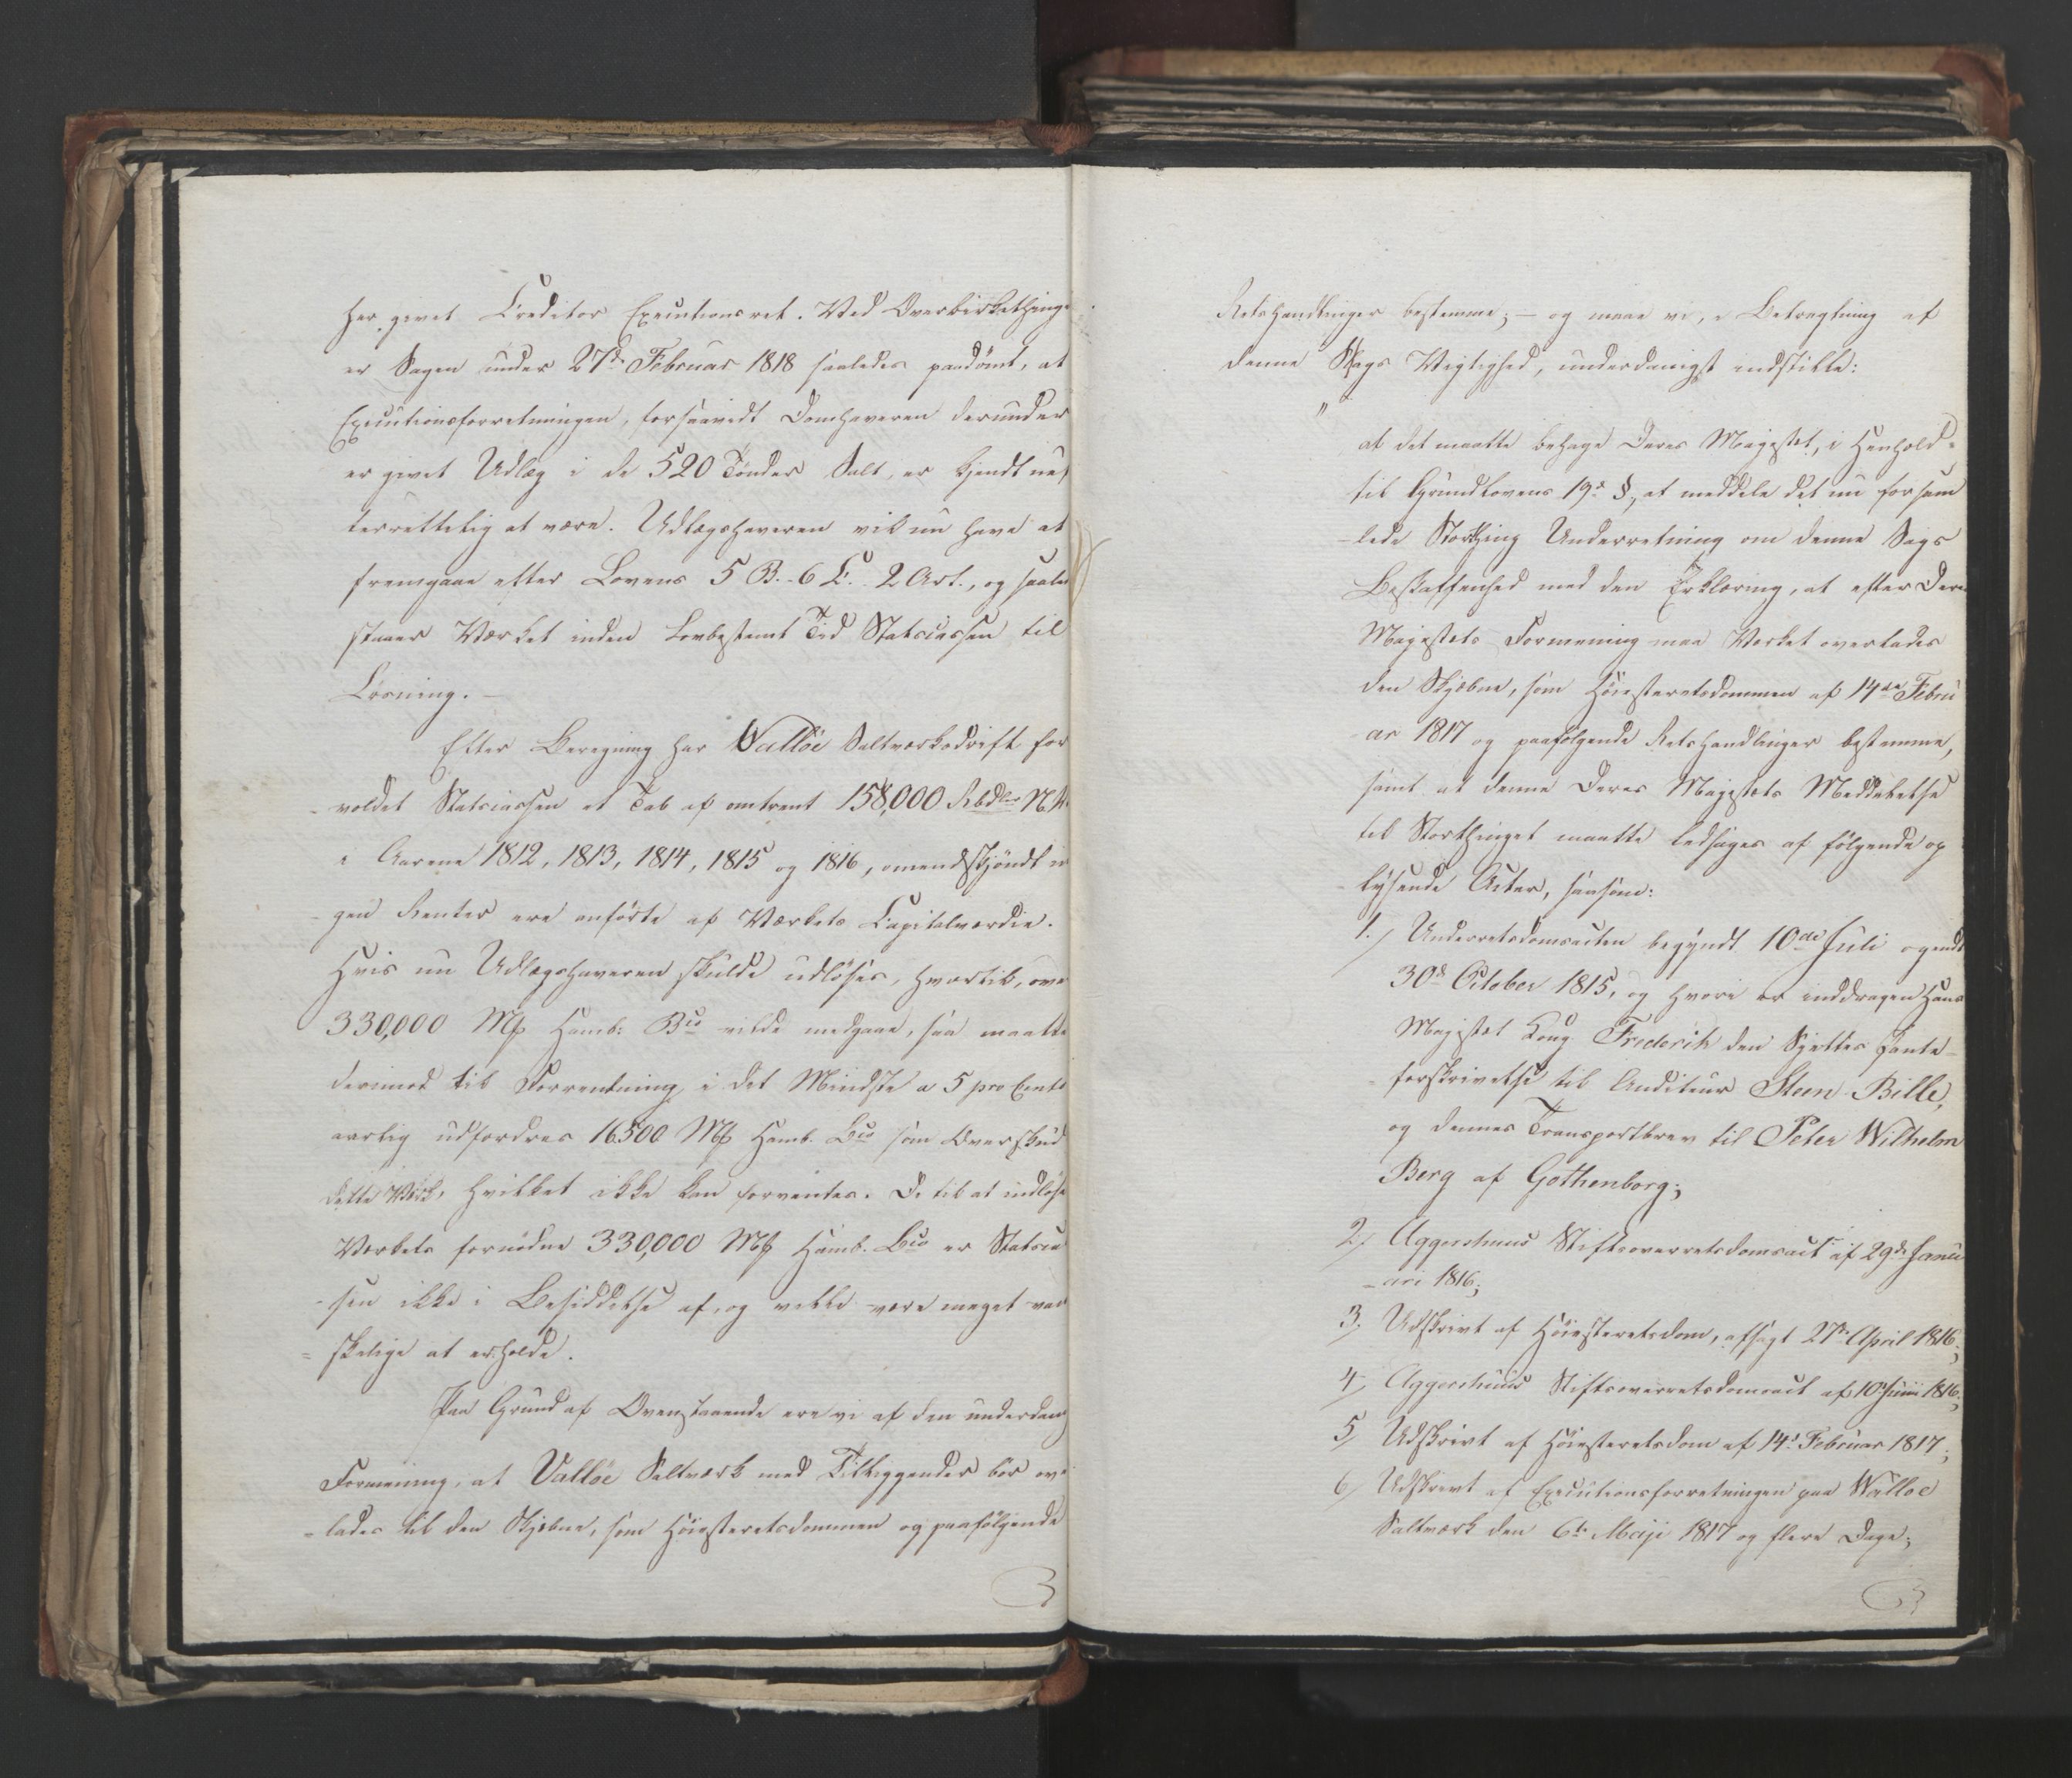 har givet Creditor Executionsret. Ved Overbirkethinge
er Sagen under 27de Februar 1818 saaledes paadömt, at
Executionsforretningen, forsaavidt Domhaveren derunder
er givet Udlæg i de 520 Tönder Salt, er kjendt uef
terrettelig at være. Udlægshaveren vil nu have at
fremgaae efter Lovens 5 B. 6 C. 2 Art., og saale
staaer Værket inden lovbestemt Tid Statscassen til
Lösning. -
Efter Beregning har Walløe Saltværksdrift for
voldet Statscassen et Tab af omtrent 158,000 Rbdler N.V.
i Aarene 1812, 1813, 1814, 1815 og 1816, omendskjöndt in
gen Renter ere anförte af Værkets Capitalværdie.
Hvis nu Udlægshaveren skulde udlöses, hvortil, over
330,000 Mk Hamb: Bco vilde medgaae, saa maatte
derimod til Forrentning i det Mindste a 5 pro Cento
aarlig udfordres 16500 Mk Hamb. Bco som Overskud
dette Værk, hvilket ikke kan forventes. De til at indlöse
Værkets fornödne 330,000 Mk Hamb. Bco er Statscas
-sen ikke i Besiddelse af, og ville være meget van
=skelige at erholde.
Paa Grund af Ovenstaaende ere vi af den underdanig
Formening, at Valløe Saltværk med Tilliggender bör ove
-lades til den Skjebne, som Höiesteretsdommen og paafölgende
Retshandlinger bestemme; - og maae vi, i Betragtning af
denne Sags Vigtighed, underdanigst indstille:
"
at det maatte behage Deres Majestet, i Henhold=
til Grundlovens 19de §, at meddele det nu forsam
-lede Storthing Underretning om denne Sags
Beskaffenhed med den Erklæring, at efter Deres
Majestets Formening maa Værket overlades
den Skjæbne, som Höiesteretsdommen af 14de Febru
ar 1817 og paafölgende Retshandlinger bestemme,
samt at denne Deres Majestets Meddelelse
til Storthinget maatte ledsages af fölgende op
lysende Acter, saasom:
1./ Underretsdomsacten begyndt 10de Juli og endt
30de October 1815, og hvori er inddragen Hans
Majestæt Kong Frederik den Sjettes Pante-
forskrivelse til Auditeur Steen Bille,
og dennes Transportbrev til Peter Wilhelm
Berg af Gothenborg;
2./ Aggershuus Stiftsoverretsdomsact af 29de Janu
-ari 1816;
3. Udskrivt af Höiesteretsdom, afsagt 27de April 1816;
4/ Aggershuus Stiftsoverretsdomsact af 10de Juni 1816;
5/ Udskrivt af Höiesteretsdom af 14de Februar 1817;
6/ Udskrivt af Executionsforretningen paa Walloe
Saltværk den 6te Maji 1817 og flere Dage;